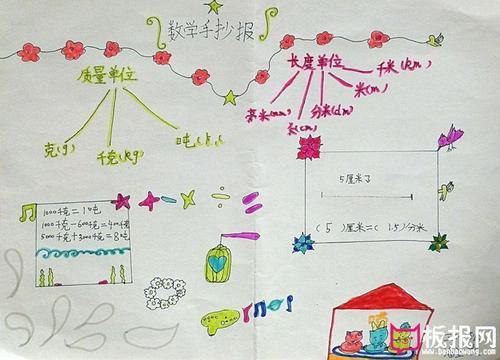 数学手抄报
质量单位
克(g)
千克(kg)
吨(t)
长度单位
毫米(mm)
(cm)
分米(dm)
米(m)
千米(km)
1000千克=1吨
1000千克-600千克=400千克
5000千克+3000千克=8吨
5厘米
( 5 )厘米=( 1.5 )分米
板报网
www.banbaowang.com